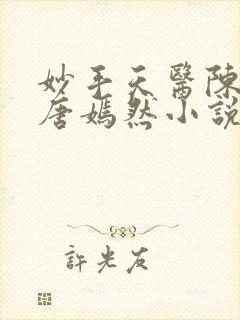 妙手天醫陳
唐嫣然小說
許光友